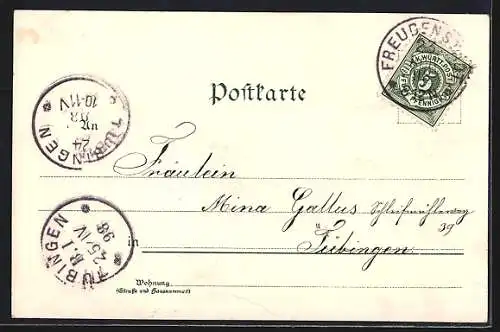 FREUDENST
K. WÜRTT. POST
5
PFENNIG
Postkarte
TÜBINGEN
24
10-11V
Fräulein
Mina Gallus Schleifmühleweg
39
in Tübingen
TÜBINGEN
B.1
25/IV
98
Wohnung
(Straße und Hausnummer)